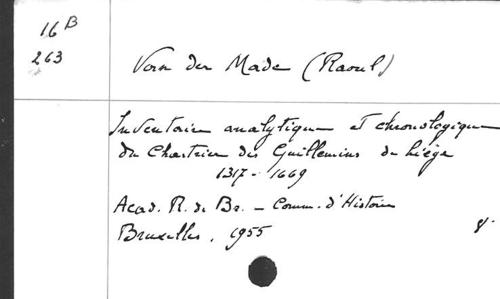 16 B
263
Van der Made (Raoul)
Inventaire analytique et chronologique
du Chartrier des Guillemins de Liège
1317 - 1669
Acad. R. de Be. - Comm. d'Histoire
Bruxelles, 1955